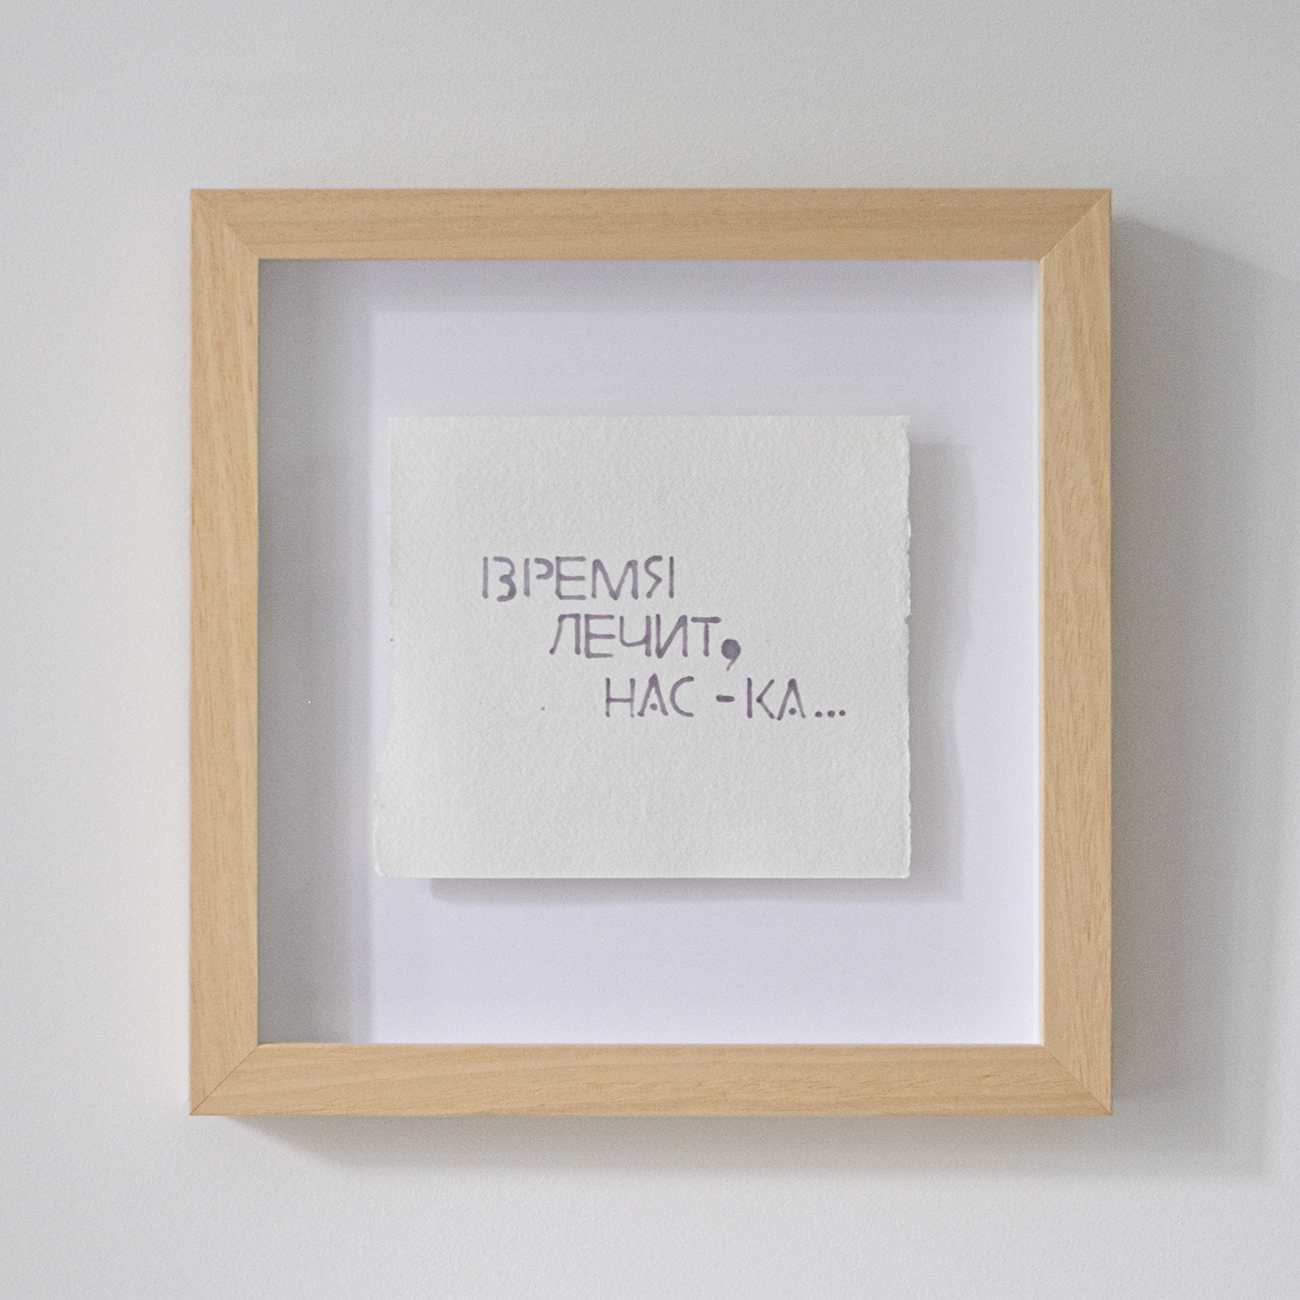 ВРЕМЯ
ЛЕЧИТ,
НАС -КА...